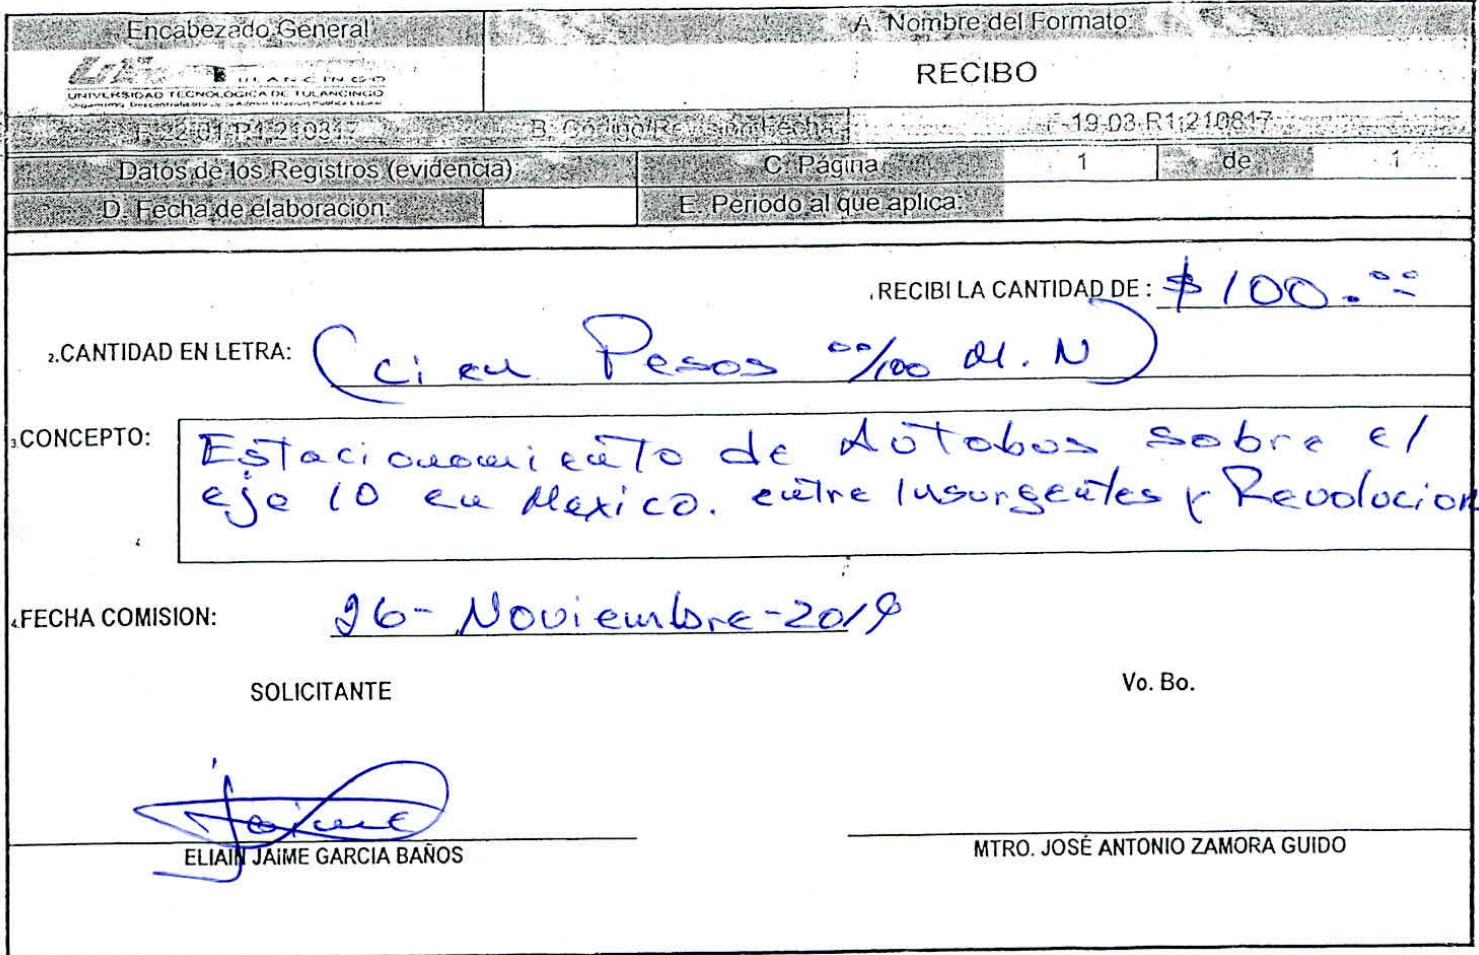 Encabezado General
A. Nombre del Formato:
TULANCINGO
UNIVERSIDAD TECNOLÓGICA DE TULANCINGO
RECIBO
B. Código/Revisión/Fecha:
F-19-03-R1-210817
Datos de los Registros (evidencia)
C. Página
1 de 1
D. Fecha de elaboracion:
E. Periodo al que aplica:
1.RECIBI LA CANTIDAD DE : $100.00
2.CANTIDAD EN LETRA: (cien Pesos 00/100 M.N)
3.CONCEPTO: Estacionamiento de Autobus sobre el
eje 10 en Mexico. entre Insurgentes y Revolucion
4.FECHA COMISION: 26-Noviembre-2019
SOLICITANTE
Vo. Bo.
Jaime
ELIAIN JAIME GARCIA BAÑOS
MTRO. JOSÉ ANTONIO ZAMORA GUIDO